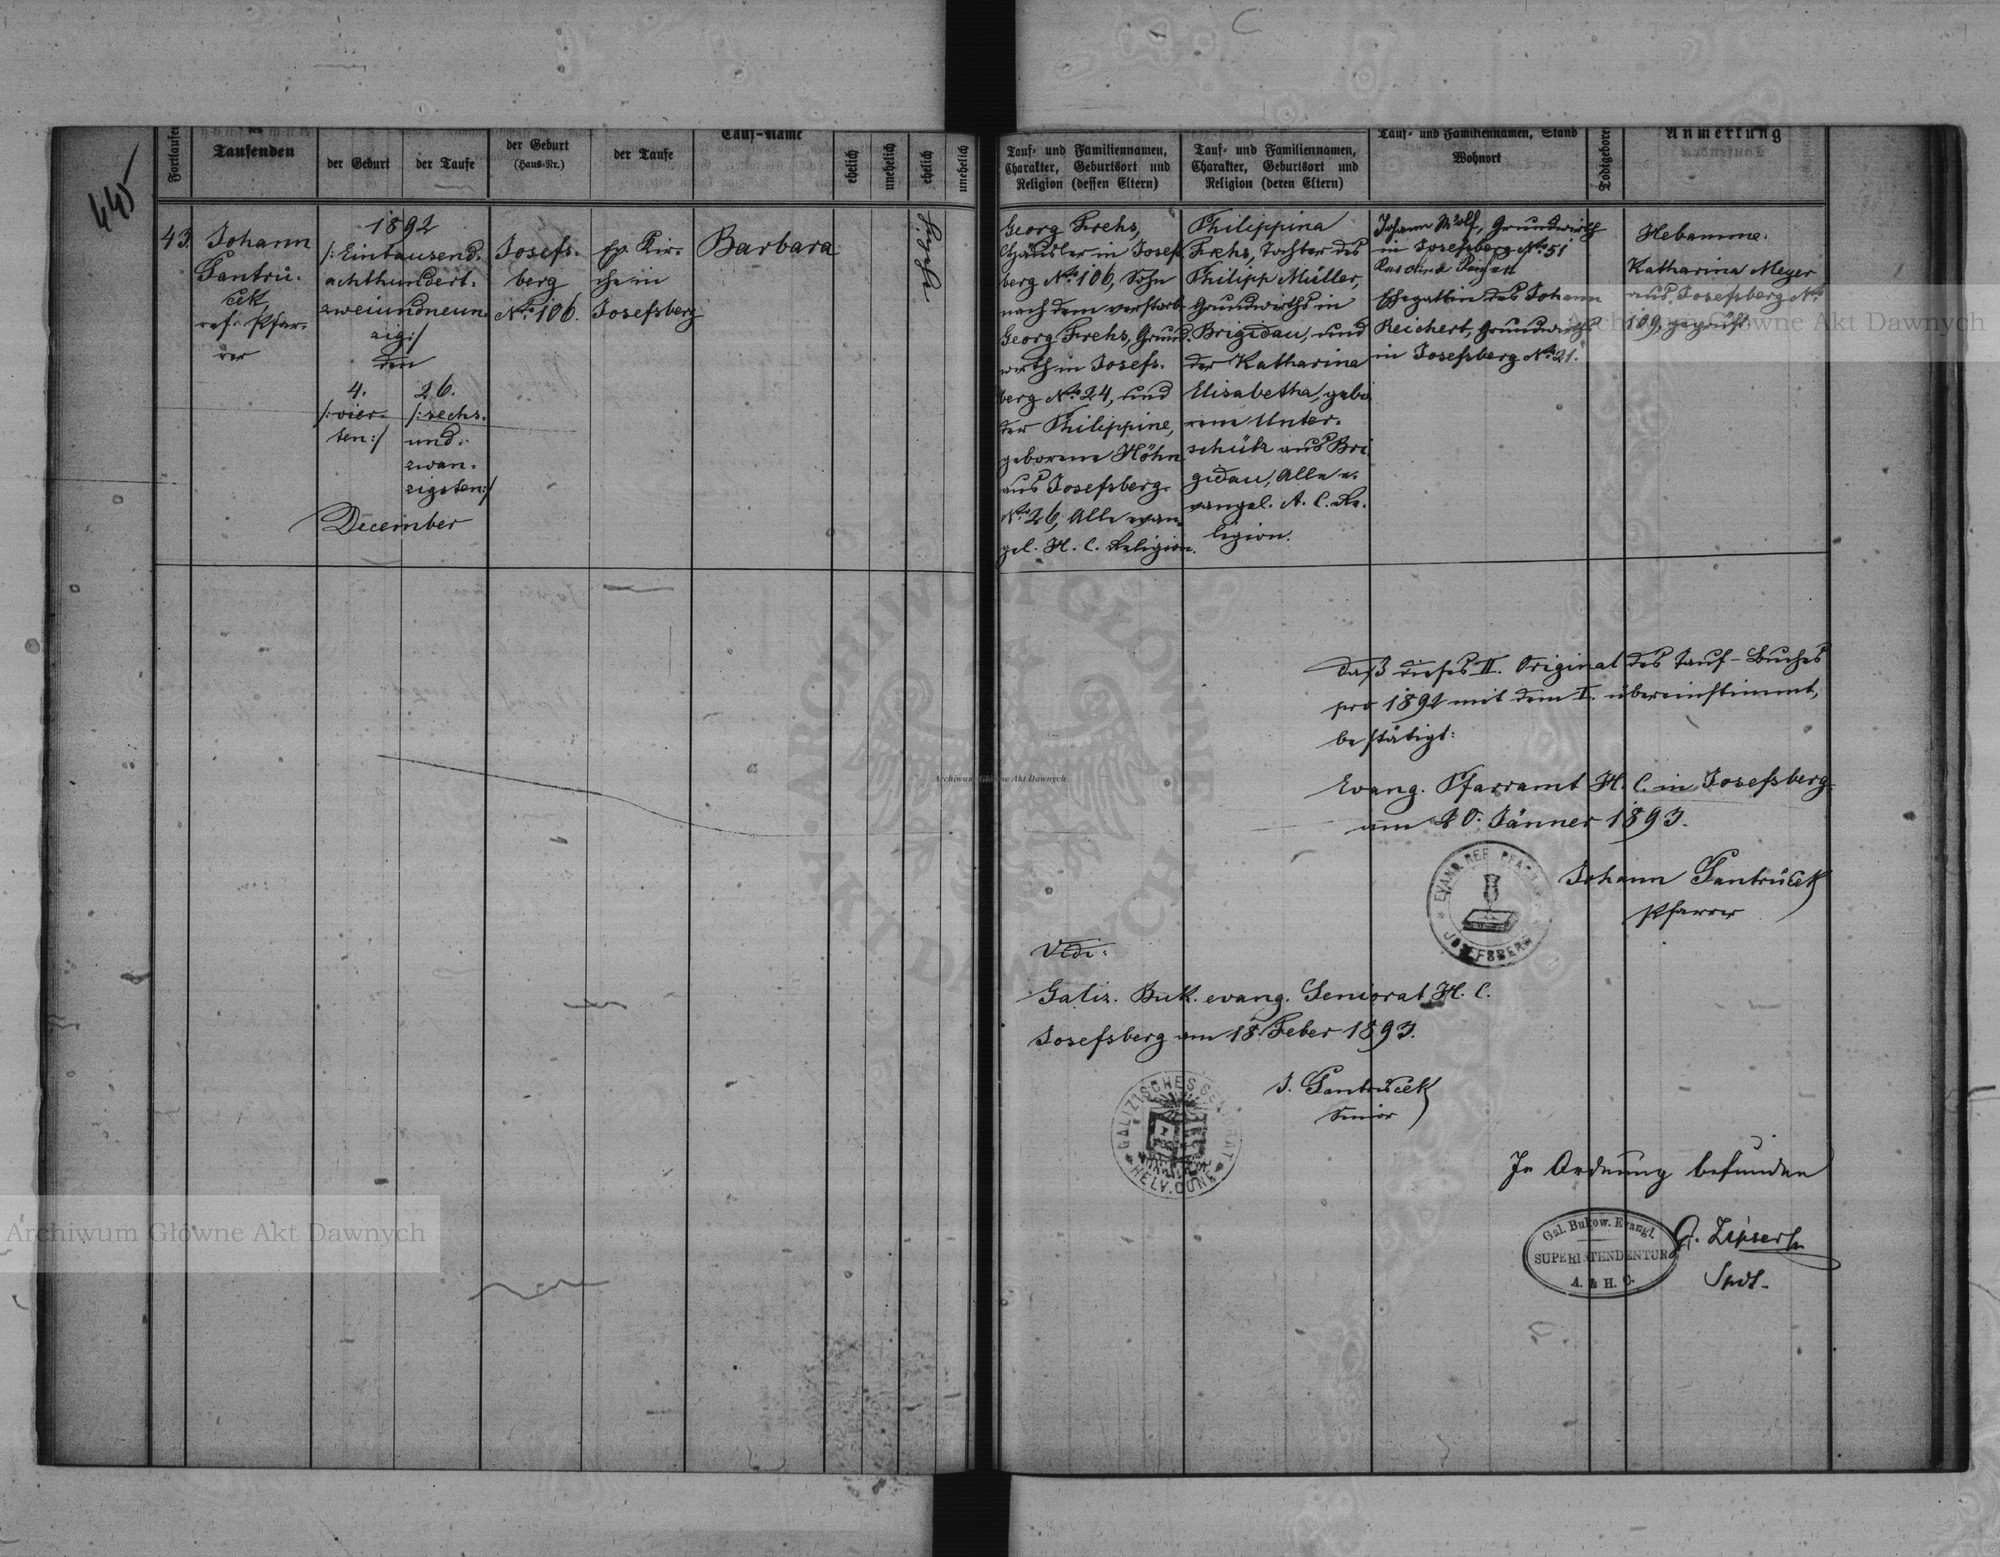 445
Fortlaufen
des
Taufenden
der Geburt
der Taufe
der Geburt
(Haus-Nr.)
der Taufe
Tauf-Name
ehelich
unehelich
ehelich
unehelich
43.
Johann
Gantrü-
ček,
ref. Pfar-
rer
1892
/:Eintausend-
achthundert-
zweiundneun-
zig:/
den
4.
/:vier-
ten:/
26.
/:sechs-
und-
zwan-
zigsten:/
December
Josefs-
berg
No. 106.
ev. Kir-
che in
Josefsberg
Barbara
Tauf- und Familiennamen,
Charakter, Geburtsort und
Religion (dessen Eltern)
Tauf- und Familiennamen,
Charakter, Geburtsort und
Religion (deren Eltern)
Tauf- und Familiennamen, Stand
Wohnort
Todtgebore
Anmerkung
Georg Frehs,
Häusler in Josef
berg No. 106, Sohn
nach dem verstorb.
Georg Frehs, Grund-
wirth in Josefs-
berg No. 24, und
der Philippine,
geborene Höhn
aus Josefsberg
No. 26, Alle evan-
gel. H. C. Religion.
Philippina
Frehs, Tochter des
Philipp Müller,
Grundwirths in
Brigidau, und
der Katharina
Elisabetha, gebo
rene Unter-
schütz aus Bri
gidau, Alle e-
vangel. A. C. Re-
ligion.
Johann Wolf, Grundwirth
in Josefsberg No. 51
Ehegattin des Johann
Reichert, Grundwirths
in Josefsberg No. 21.
Hebamme:
Katharina Meyer
aus Josefsberg No.
109, geprüft
Daß dieses II. Original des Tauf-Buches
pro 1892 mit dem I. übereinstimmt,
bestätigt:
Evang. Pfarramt H. C. in Josefsberg
am 20. Jänner 1893.
Johann Gantrüček
Pfarrer
EVANG. REF. PFARR
JOSEFSBERG
Vidi:
Galiz. Buk. evang. Seniorat H. C.
Josefsberg am 18. Feber 1893.
J. Gantrüček
Senior
GALIZISCHES SENIORAT
HELV. CONF.
In Ordnung befunden
Gal. Bukow. Evangl.
SUPERINTENDENTUR
A. & H. C.
G. Zipser
Spdt.
ARCHIWUM GŁÓWNE
AKT DAWNYCH
Archiwum Główne Akt Dawnych
Archiwum Główne Akt Dawnych
Archiwum Główne Akt Dawnych